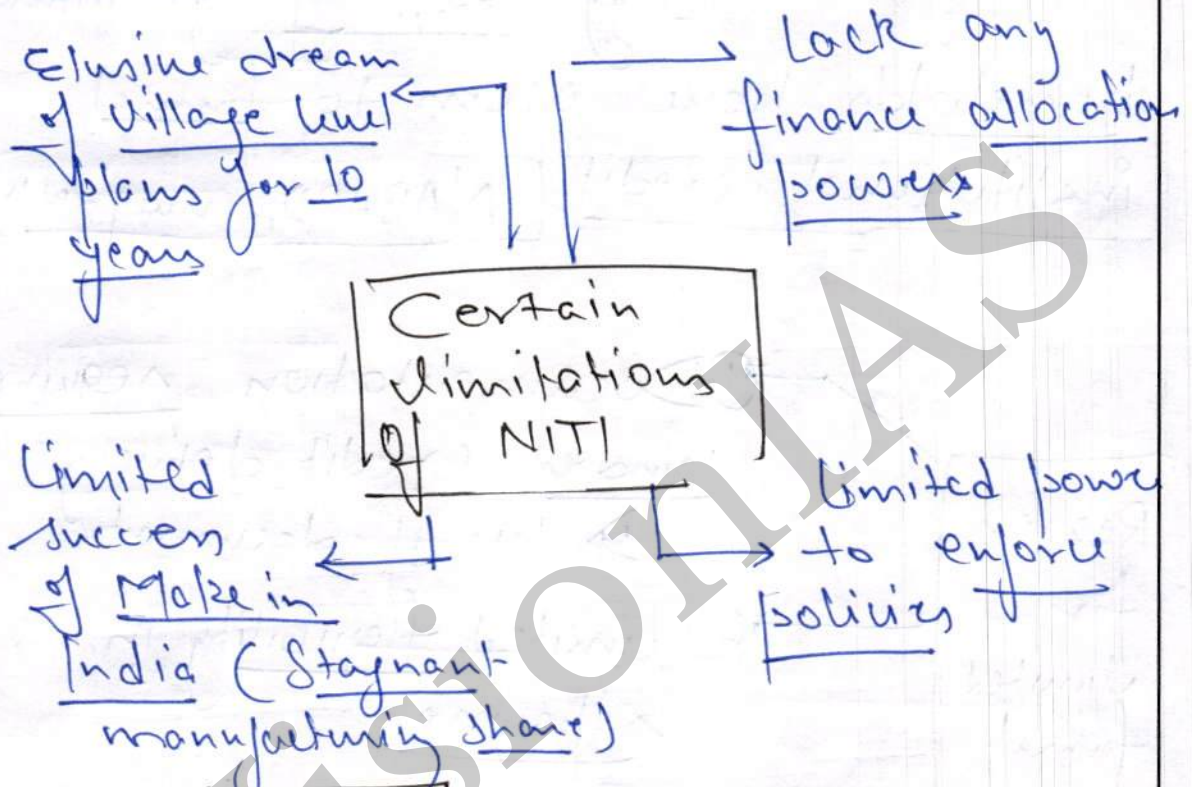 Elusive dream
of Village level
plans for 10
years
Lack any
finance allocation
powers
Certain
limitations
of NITI
Limited
success
of Make in
India (Stagnant
manufacturing share)
Limited power
to enforce
policies
VisionIAS